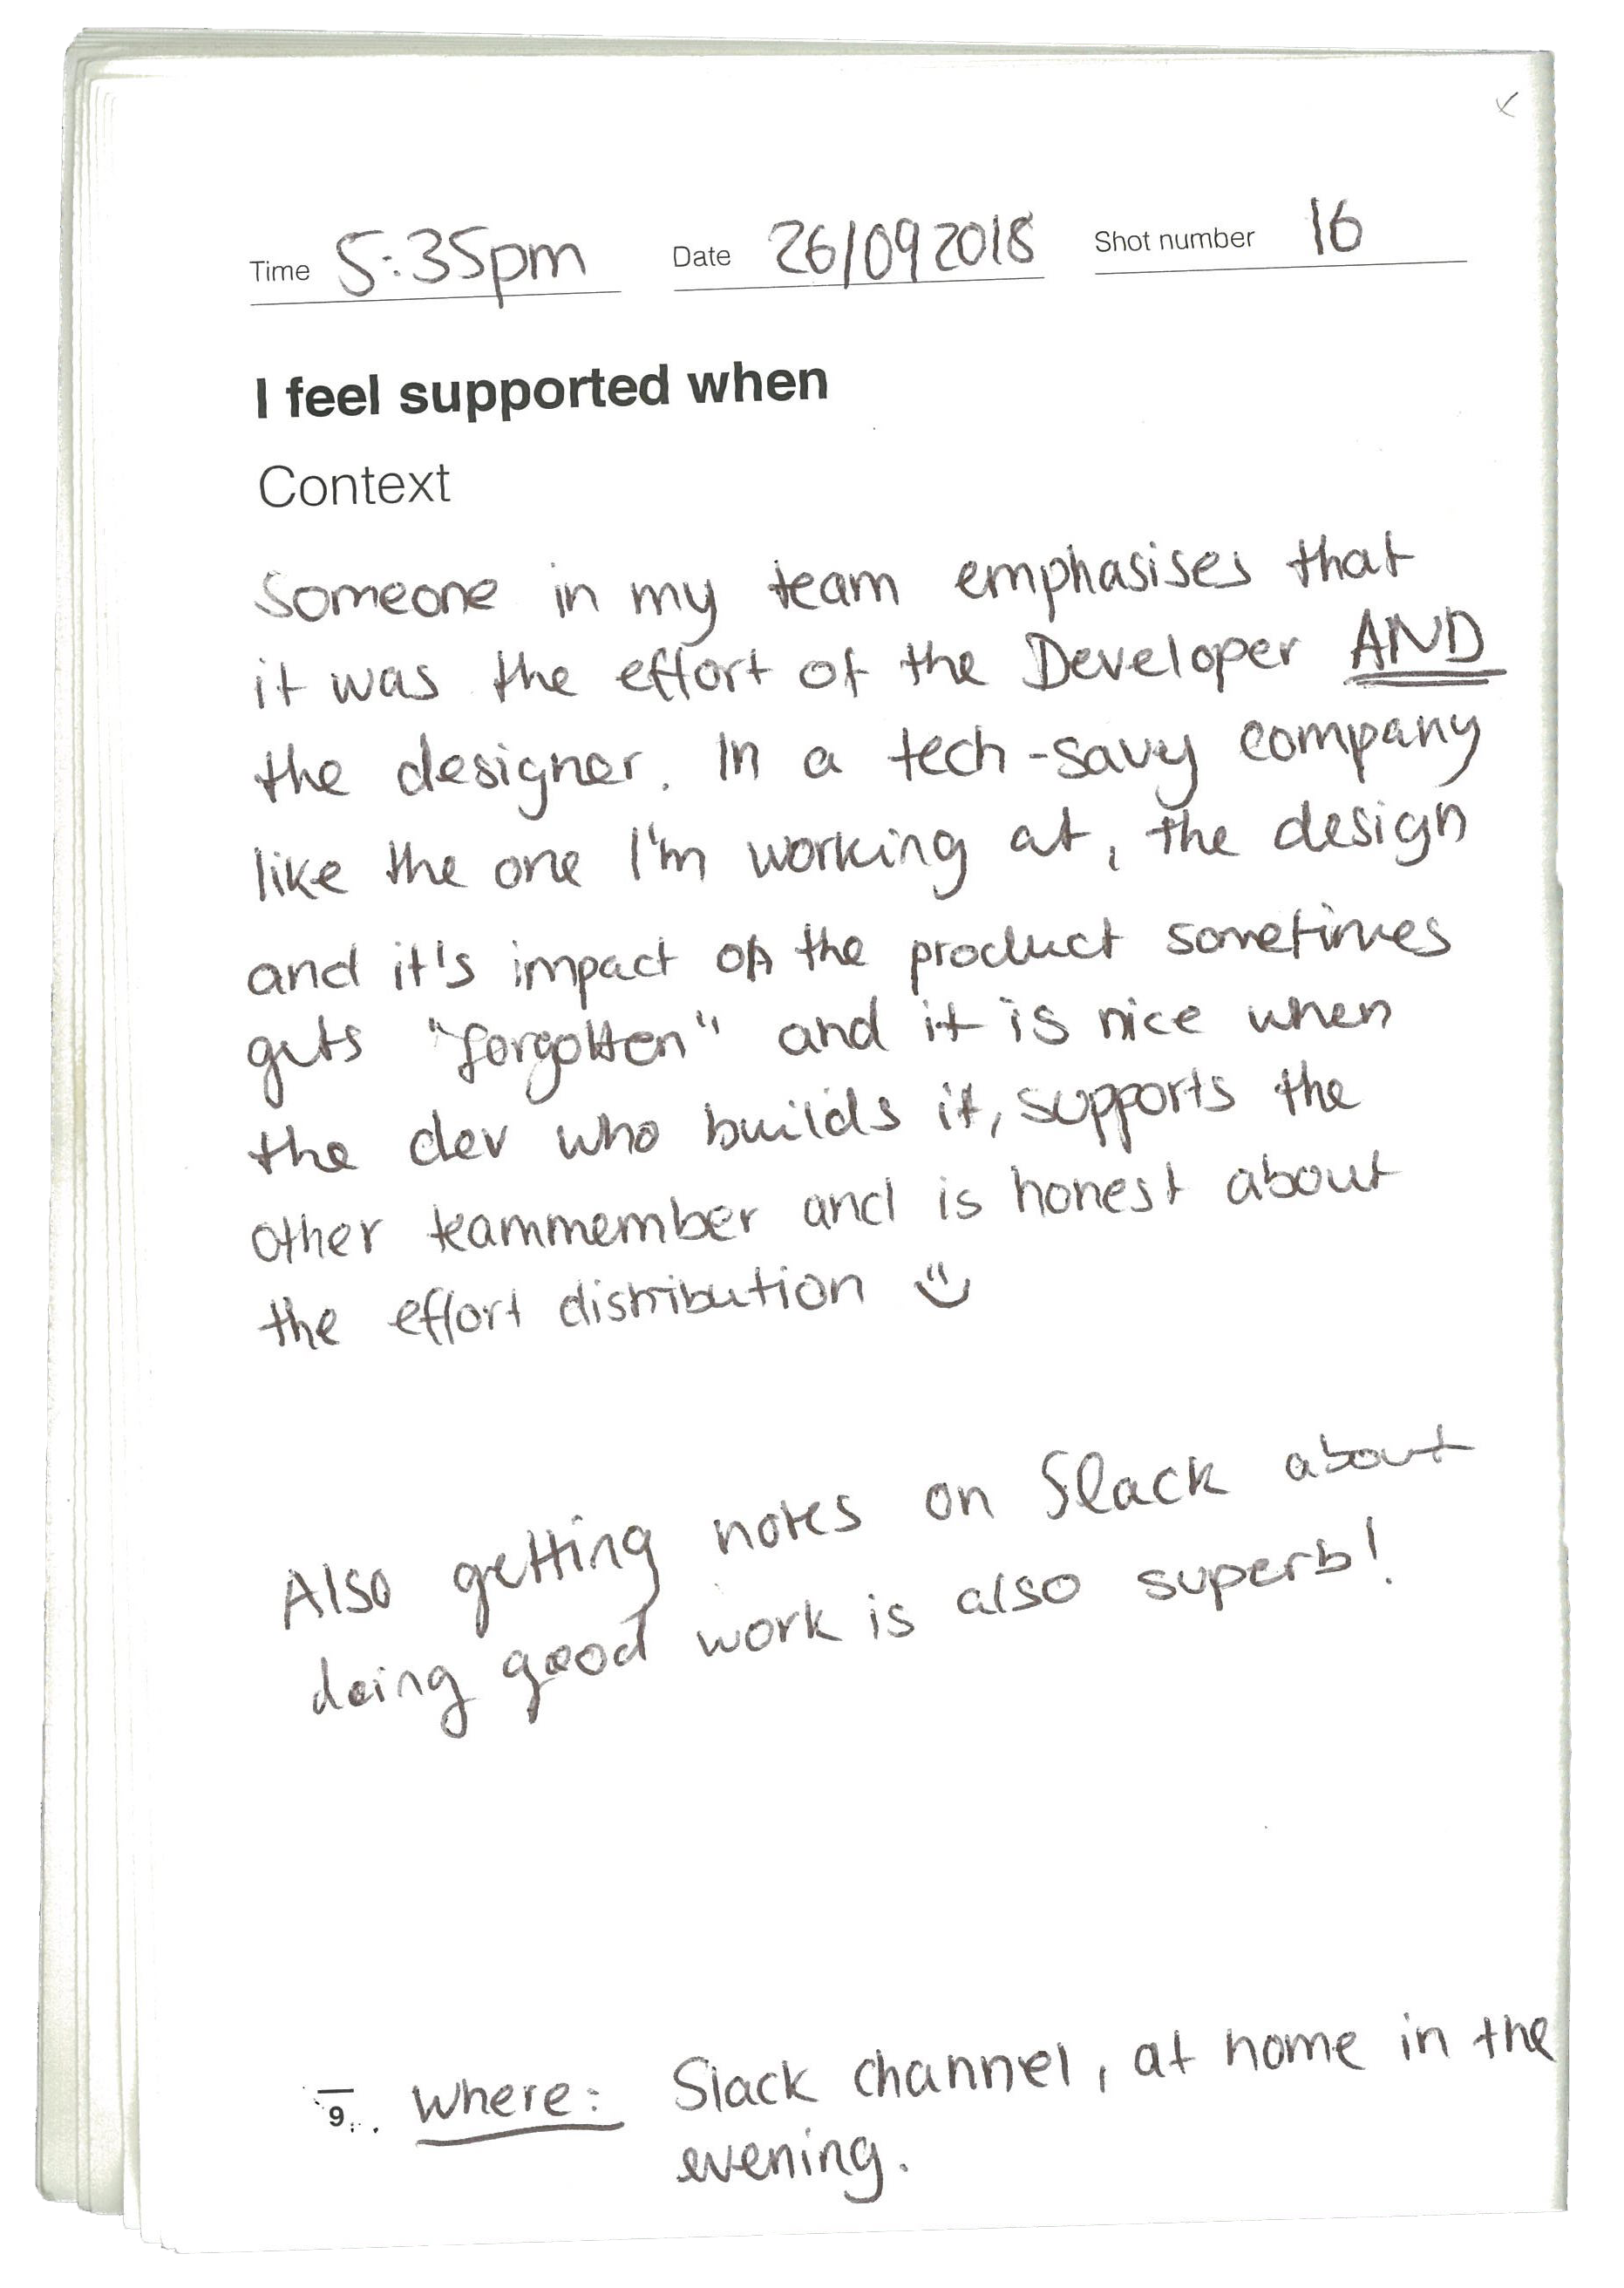 Time 5:35pm Date 26/09 2018 Shot number 16
I feel supported when
Context
Someone in my team emphasises that
it was the effort of the Developer AND
the designer. In a tech-savy company
like the one I'm working at, the design
and it's impact on the product sometimes
gets "forgotten" and it is nice when
the dev who builds it, supports the
other teammember and is honest about
the effort distribution
Also getting notes on Slack about
doing good work is also superb!
9
Where: Slack channel, at home in the
evening.